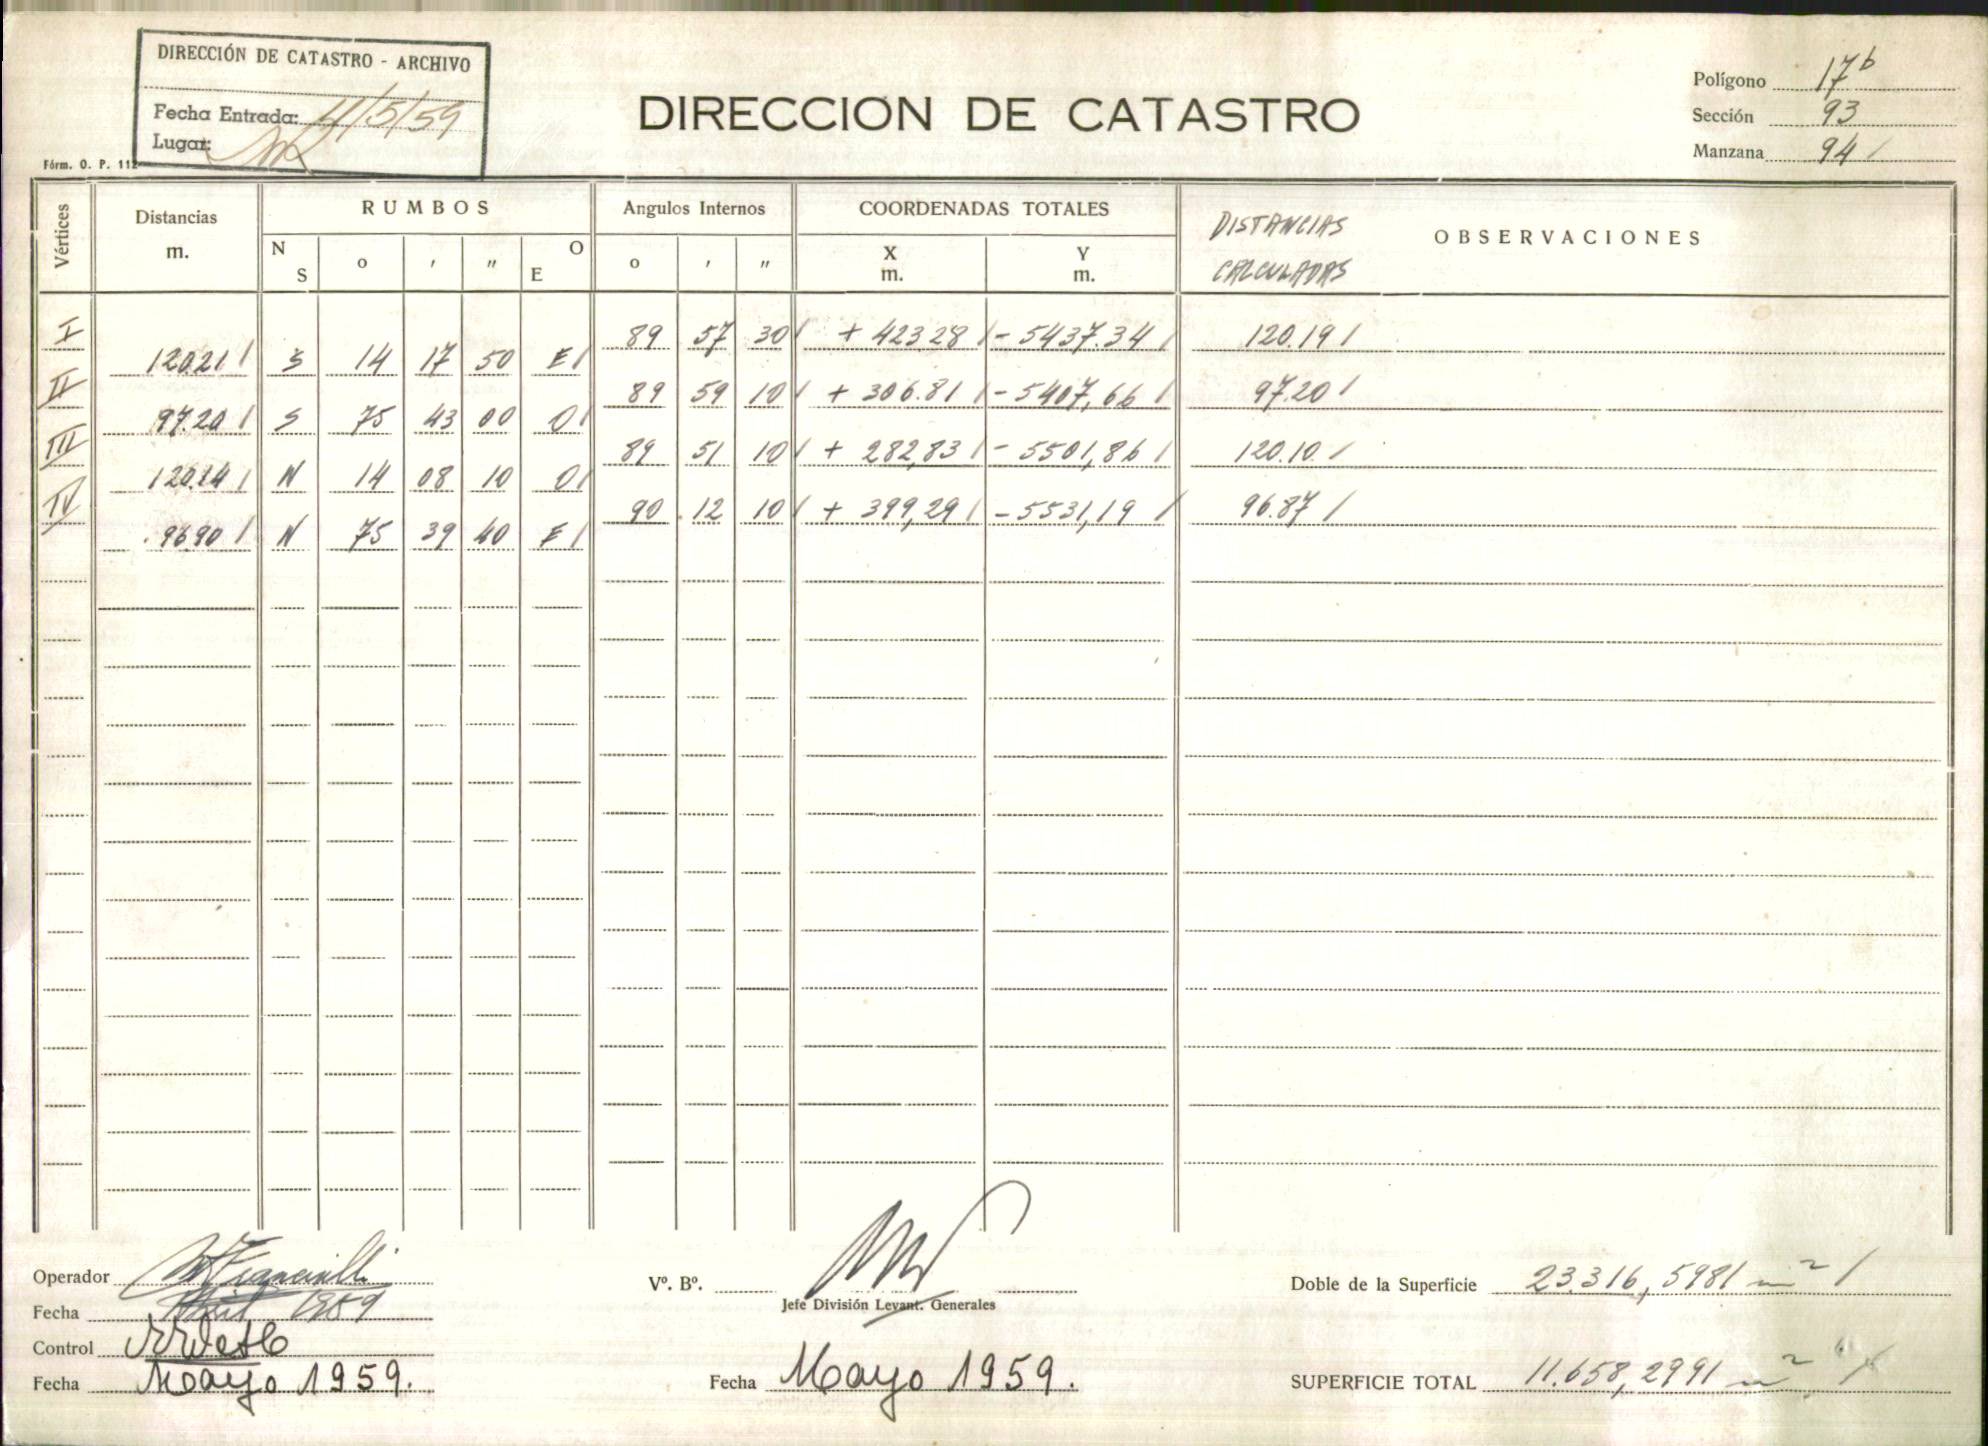 DIRECCIÓN DE CATASTRO - ARCHIVO
Fecha Entrada: 4/5/59
Lugar:
Fórm. O. P. 112
DIRECCION DE CATASTRO
Polígono 17b
Sección 93
Manzana 94 /
Vértices Distancias m. RUMBOS Angulos Internos COORDENADAS TOTALES DISTANCIAS CALCULADAS OBSERVACIONES
N S o ' " O E o ' " X m. Y m.
I 89 57 30 / + 423 28 / - 5437.34 / 120.19 /
120 21 / S 14 17 50 E /
II 89 59 10 / + 306.81 / - 5407,66 / 97.20 /
97.20 / S 75 43 00 O /
III 89 51 10 / + 282,83 / - 5501,86 / 120.10 /
120.14 / N 14 08 10 O /
IV 90 12 10 / + 399,29 / - 5531,19 / 96.87 /
96 90 / N 75 39 40 E /
Operador
Fecha Abril 1959
Control
Fecha Mayo 1959.
Vº. Bº.
Jefe División Levant. Generales
Fecha Mayo 1959.
Doble de la Superficie 23.316,5981 m² /
SUPERFICIE TOTAL 11.658,2991 m² /